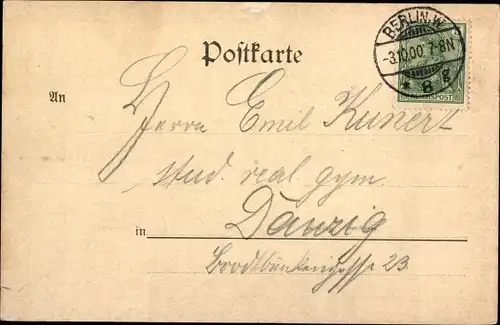 BERLIN. W.
-3.10.00 7-8N
* 8 g
REICHSPOST
Postkarte
An
Herrn Emil Kunert
stud. real. gym.
in Danzig
Brodtbänkengasse 23.